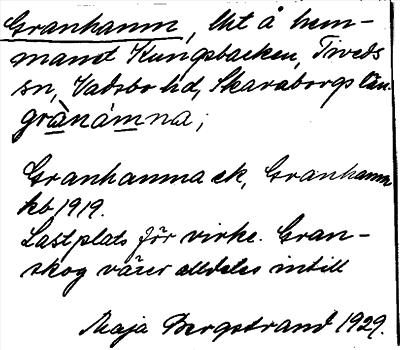 Granhamn, lht å hem-
manet Kungsbacken, Tiveds
sn, Vadsbo hd, Skaraborgs län.
grànámna;
Granhamna ek, Granhamn
kb 1919.
Lastplats för virke. Gran-
skog växer alldeles intill
Maja Bergstrand 1929.